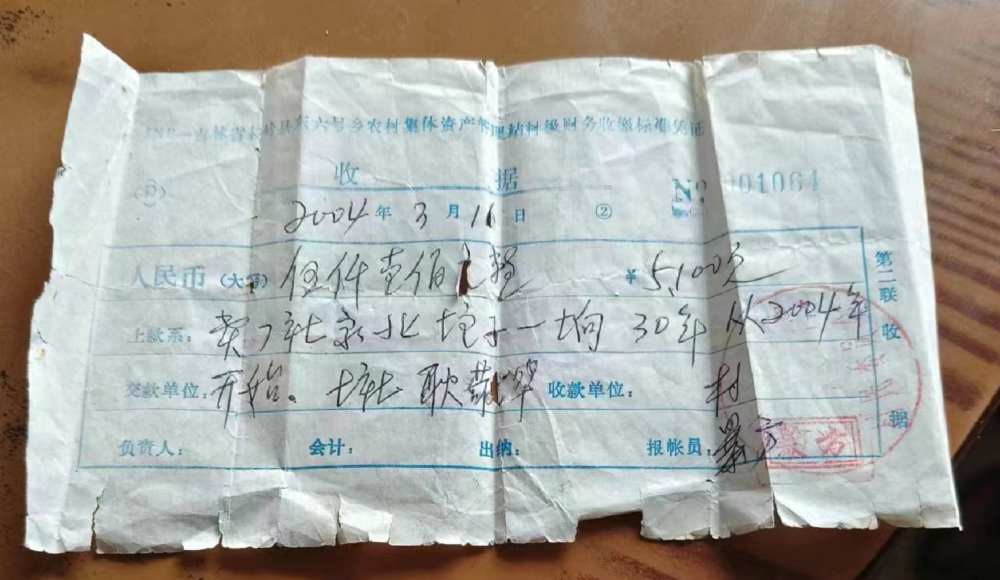 吉林省长岭县东六号乡农村集体资产管理站村级财务收缴标准凭证
收 据 № 001064
2004年3月11日 ②
人民币(大写) 伍仟壹佰元整 ¥ 5,100元
上款系: 买 社家北 一垧 30年 从2004年
交款单位: 开始. 社 耿 收款单位: 村
负责人: 会计: 出纳: 报帐员:
第二联 收据